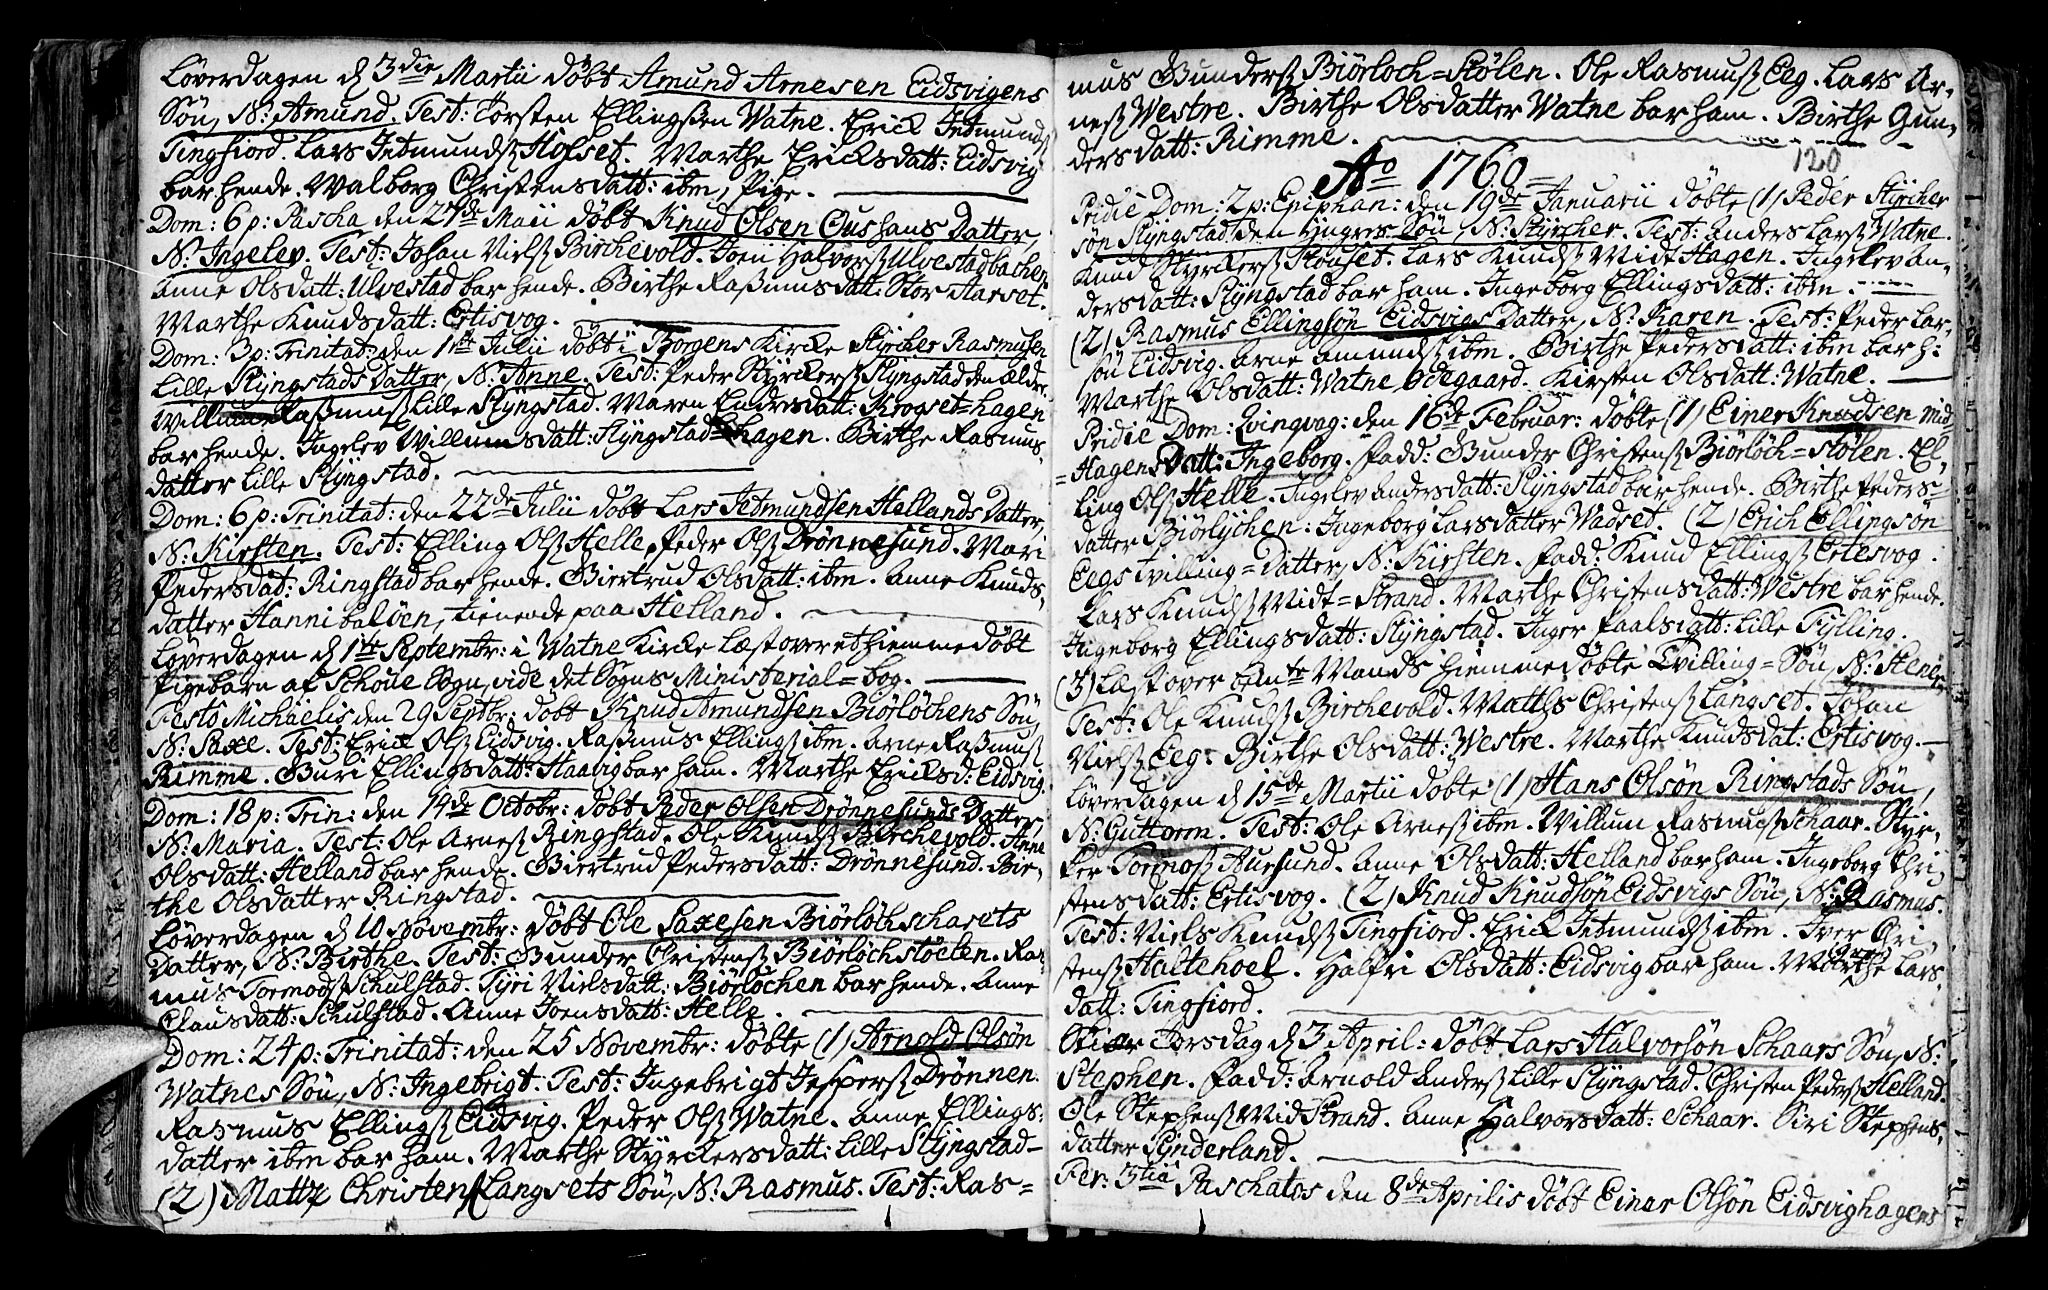 Løverdagen d 3die Martii døbt Amund Arnesen Eidsvigens
Søn, N: Amund. Test: Torsten Ellingssen Watne. Erick Jetmunds
Tingfiord. Lars Jetmunds Hofset. Marthe Ericksdatt: Eidsvig
bar hende. Walborg Christensdatt: ibm, Pige.
Dom: 6 p: Pascha, den 27de Maii døbt Knud Olsen Oushans Datter,
N: Ingelev. Test: Johan Niels Birchevold. Joen Halvors Ulvestadbachen
Anne Olsdatt: Ulvestad bar hende. Birthe Rasmusdatt: Stor Aarset.
Marthe Knudsdatt: Ertisvog.
Dom: 3 p: Trinitat: den 1te Julii døbt i Borgens Kircke Styrcher Rasmusen
Lille Slyngstads Datter, N: Anne. Test: Peder Styrckers Slyngstad den ældre.
Willum Rasmus Lille Slyngstad. Maren Endresdatt: Krogset=hagen
bar hende. Ingelev Willumsdatt: Slyngstad=hagen. Birthe Rasmus-
datter Lille Slyngstad.
Dom: 6 p: Trinitat: den 22de Julii døbt Lars Jetmundsen Hellands Datter,
N: Kirsten. Test: Elling Ols Helle, Peder Ols Drønnesund. Mari
Pedersdat: Ringstad bar hende. Giertrud Olsdatt: ibm. Anne Knuds-
datter Hannibaløen, tienende paa Helland.
Løverdagen d 1te Septembr: i Watne Kircke Læst over et hiemmedøbt
Pigebarn af Schoue Sogn, vide det Sogns Ministerial=bog.
Festo Michaelis den 29 Septbr: døbt Knud Amundsen Biørløchens Søn,
N: Saxe. Test: Erick Ols Eidsvig. Rasmus Ellings ibm. Arne Rasmus
Rimme. Guri Ellingsdatt: Haavig bar ham. Marthe Ericksd: Eidsvig.
Dom: 18 p: Trin: den 14de Octobr: døbt Peder Olsen Drønnesunds Datter,
N: Maria. Test: Ole Arnes Ringstad. Ole Knuds Birchevold. Anne
Olsdatt: Helland bar hende. Giertrud Pedersdatt: Drønnesund. Bir-
the Olsdatter Ringstad.
Løverdagen d 10 Novembr: døbt Ole Saxesen Biørløchscharets
Datter, N: Birthe. Test: Gunder Christens Biørløchstøelen. Ras-
mus Tormods Schulstad. Tyri Nielsdatt: Biørløchen bar hende. Anne
Clausdatt: Schulstad. Anne Joensdatt: Helle.
Dom: 24 p: Trinitat: den 25 Novembr: døbte (1) Arnold Olsøn
Watnes Søn, N: Ingebrigt. Test: Ingebrigt Jespers Drønnen.
Rasmus Ellings Eidsvig. Peder Ols Watne. Anne Ellings-
datter ibm bar ham. Marthe Styrckersdatt: Lille Slyngstad-
(2) Mattz Christens Langsets Søn, N: Rasmus. Test: Ras=
mus Gunders Biørloch=Stølen. Ole Rasmus Eeg. Lars Ar-
nes Westre. Birthe Olsdatter Watne bar ham. Birthe Gun-
dersdatt: Rimme.
120
Ao 1760
Pridie Dom: 2 p: Epiphan: den 19de Januarii døbte (1) Peder Styrcher
søn Slyngstad den yngres Søn, N: Styrcher. Test: Anders Lars Watne.
Knud Styrckers Slouset. Lars Knuds Midt Hagen. Ingelev An-
dersdatt: Slyngstad bar ham. Ingeborg Ellingsdatt: ibm.
(2) Rasmus Ellingsøn Eidsvigs Datter, N: Karen. Test: Peder Lar-
søn Eidsvig. Arne Amunds ibm. Birthe Pedersdatt: ibm bar h:
Marthe Olsdatt: Watne Ødegaard. Kirsten Olsdatt: Watne.
Pridie Dom: Qvinqvag: den 16de Februar: døbte (1) Einer Knudsen Mid
=Hagens Datt: Ingeborg. Fadd: Gunder Christens Biørløch=Stølen. El-
ling Ols Helle. Ingelev Andersdatt: Slyngstad bar hende. Birthe Peders=
datter Biørlychen: Ingeborg Larsdatter Wadset. (2) Erich Ellingsøn
Eegs tvilling=Datter, N: Kirsten. Fadd: Knud Ellings Ertesvog.
Lars Knuds Midt=Strand. Marthe Christensdatt: Westre bar hende.
Ingeborg Ellingsdatt: Slyngstad. Inger Paalsdatt: Lille Fylling.
(3) Læst over bemte Mands hiemmedøbte Tvilling=Søn, N:
Test: Ole Knuds Birchevold. Matths Christens Langset. Johan
Niels Eeg. Birthe Olsdatt: Westre. Marthe Knudsdat: Ertisvog.
Løverdagen d 15de Martii døbte (1) Hans Olsøn Ringstads Søn,
N: Guttorm. Test: Ole Arnes ibm. Willum Rasmus Schaar. Styr-
ker Tormos Auesund. Anne Olsdatt: Helland bar ham. Ingeborg Chri-
stensdatt: Ertisvog. (2) Knud Knudsøn Eidsvigs Søn, N: Rasmus.
Test: Niels Knuds Tingfiord. Erick Jetmunds ibm. Iver Chri-
stens Haltehoel. Halfri Olsdatt: Eidsvig bar ham. Marthe Lars-
datt: Tingfiord.
Skiær Torsdag d 3 April: døbt Lars Halvorsøn Schaars Søn, N:
Stephen. Fadd: Arnold Anders Lille Slyngstad. Christen Peders Helland.
Ole Stephens Mid Strand. Anne Halvorsdatt: Schaar. Siri Stephens-
datter Synderland.
Fer: 3tia Paschatos den 8de Aprilis døbt Einar Olsøn Eidsvighagens